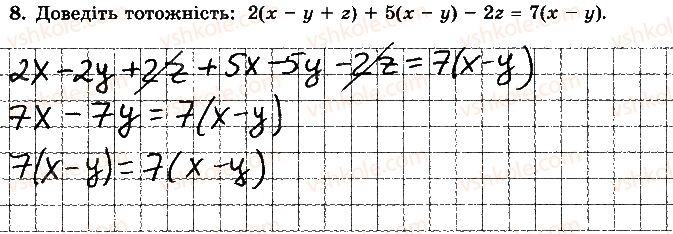 8. Доведіть тотожність: 2(x − y + z) + 5(x − y) − 2z = 7(x − y).
2x − 2y + 2z + 5x − 5y − 2z = 7(x − y)
7x − 7y = 7(x − y)
7(x − y) = 7(x − y)